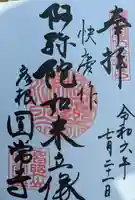 奉拝
令和六年
七月二十一日
快慶作
阿弥陀如来立像
彦根
円常寺